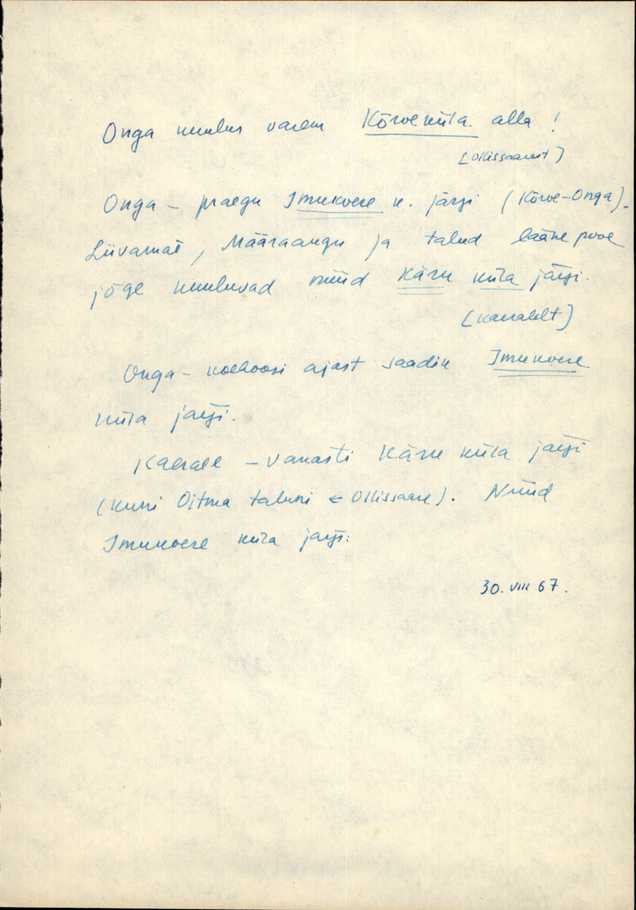 Onga kuulus varem Kõrveküla alla!
[Ollissaarelt]
Onga – praegu Imukvere k. järgi (Kõrve-Onga).
Liivamäe, Määraangu ja talud lääne pool
jõge kuuluvad nüüd Käru küla järgi.
Onga – kolhoosi ajast saadik Imukvere
küla järgi.
– vanasti Käru küla järgi
(kuni Oitma taluni ← Ollissaare). Nüüd
Imukvere küla järgi.
30. VIII 67.